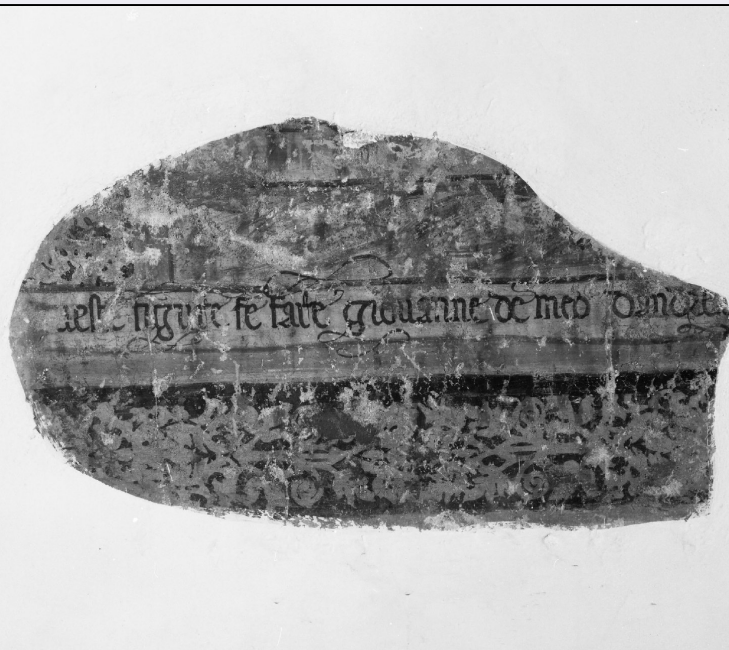 figure fe fare giovanne de meo